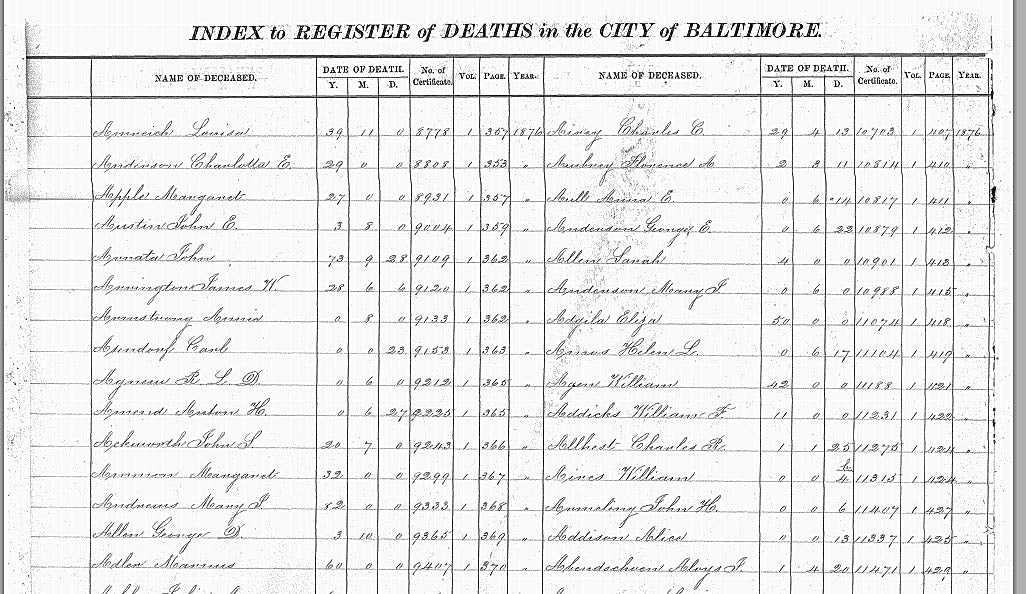 INDEX to REGISTER of DEATHS in the CITY of BALTIMORE.
NAME OF DECEASED. DATE OF DEATH. No. of Certificate. VOL. PAGE. YEAR. NAME OF DECEASED. DATE OF DEATH. No. of Certificate. VOL. PAGE. YEAR.
Y. M. D. Y. M. D.
Louisa 39 11 0 8778 1 357 1876 Charles C. 29 4 13 10703 1 407 1876
Anderson Charlotta E. 29 0 0 8808 1 353 " Aubrey Florence A 2 3 11 10814 1 410 "
Apple Margaret 27 0 0 8931 1 357 " Aull Anna E. 0 6 14 10817 1 411 "
Austin John E. 3 8 0 9004 1 359 " Anderson George E. 0 6 22 10879 1 412 "
John 73 9 28 9109 1 362 " Allen Sarah 4 0 0 10901 1 413 "
James W. 28 6 6 9120 1 362 " Anderson Mary J. 0 6 0 10988 1 415 "
Armstrong Annie 0 8 0 9133 1 362 " Eliza 50 0 0 11074 1 418 "
Asendorf Carl 0 0 23 9153 1 363 " Amos Helen L. 0 6 17 11104 1 419 "
R. L. D. 0 6 0 9212 1 365 " William 42 0 0 11188 1 421 "
Amend Anton H. 0 6 27 9225 1 365 " Addicks William F. 11 0 0 11231 1 422 "
Ackworth John S 20 7 0 9243 1 366 " Charles R. 1 1 25 11275 1 424 "
Ammon Margaret 32 0 0 9299 1 367 " Aires William 0 0 4 h 11315 1 424 "
Andrews Mary J. 82 0 0 9333 1 368 " John H. 0 0 6 11407 1 427 "
Allen George D. 3 10 0 9365 1 369 " Addison Alice 0 0 13 11337 1 425 "
Adler Marcus 60 0 0 9407 1 370 " Abendschoen Aloys J. 1 4 20 11471 1 429 "